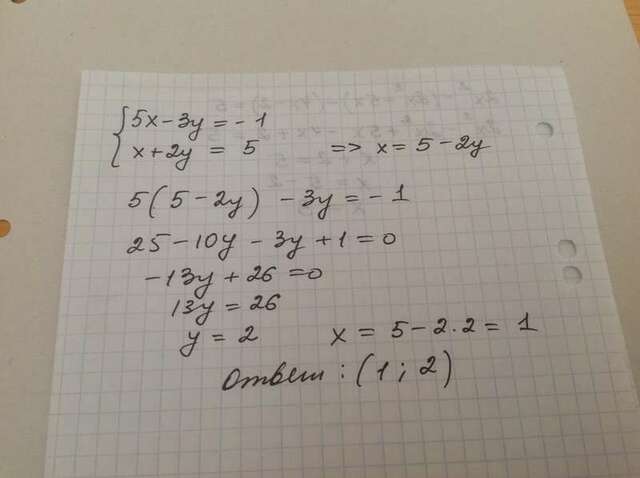 5x-3y=-1
x+2y = 5 => x=5-2y
5(5-2y) -3y=-1
25-10y-3y+1=0
-13y+26=0
13y=26
y=2 x=5-2.2=1
Ответ: (1; 2)